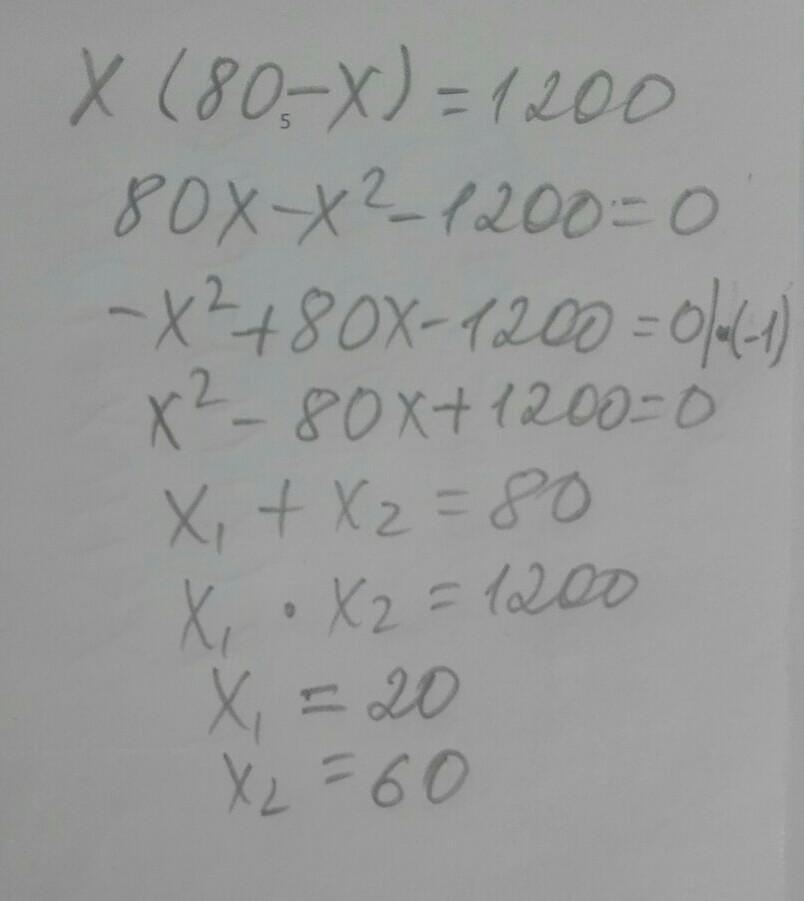 x (80-x) = 1200
5
80x-x²-1200=0
-x²+80x-1200=0|·(-1)
x²-80x+1200=0
x₁ + x₂ = 80
x₁ · x₂ = 1200
x₁ = 20
x₂ = 60